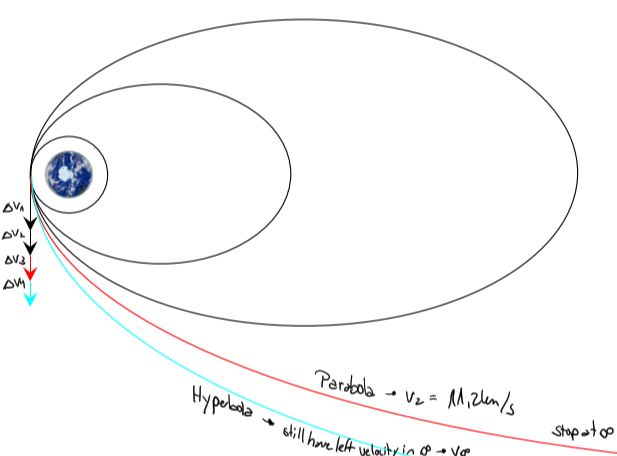 ΔV₁
ΔV₂
ΔV₃
ΔV₄
Parabola → V₂ = 11,2km/s
Hyperbola → still have left velocity in ∞ → V∞
stop at ∞